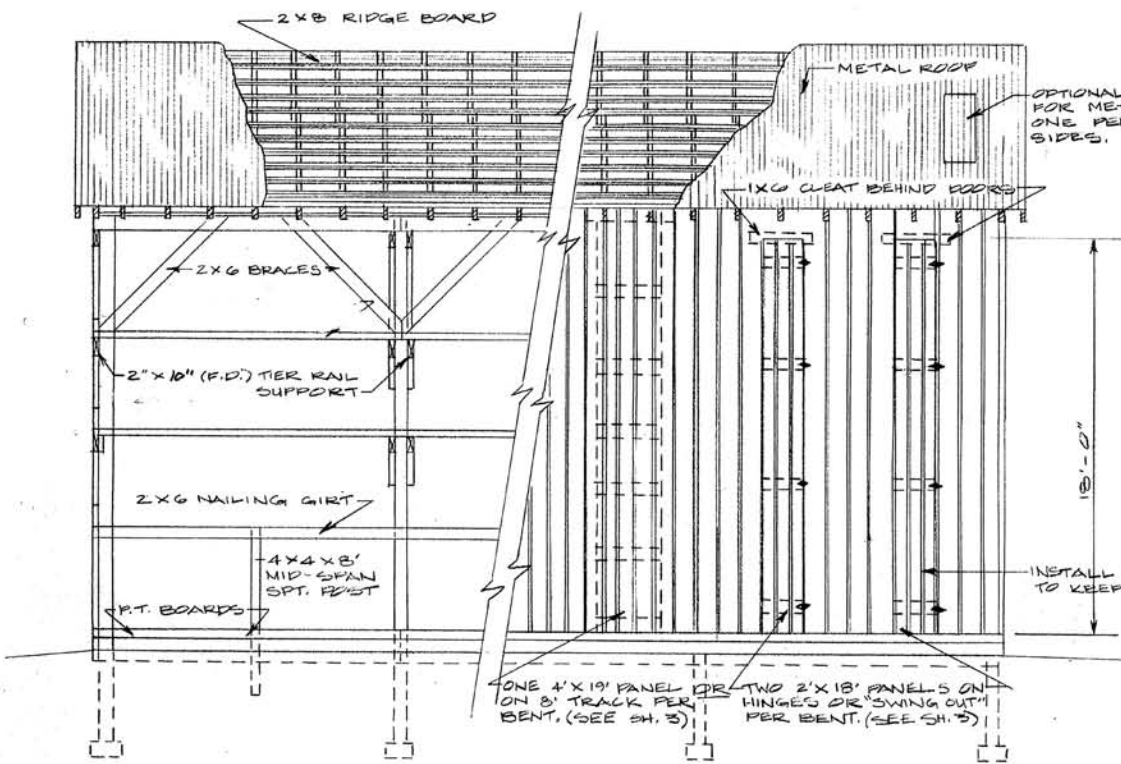 2 X 8 RIDGE BOARD
METAL ROOF
OPTIONAL
FOR ME
ONE PE
SIDES.
1X6 CLEAT BEHIND DOORS
2X6 BRACES
2" X 10" (F.D.) TIER RAIL
SUPPORT
18'-0"
2X6 NAILING GIRT
4X4X8'
MID-SPAN
SPT. POST
P.T. BOARDS
INSTALL
TO KEEP
ONE 4'X19' PANEL OR
ON 8' TRACK PER
BENT. (SEE SH. 3)
TWO 2'X18' PANELS ON
HINGES OR "SWING OUT"
PER BENT. (SEE SH. 3)